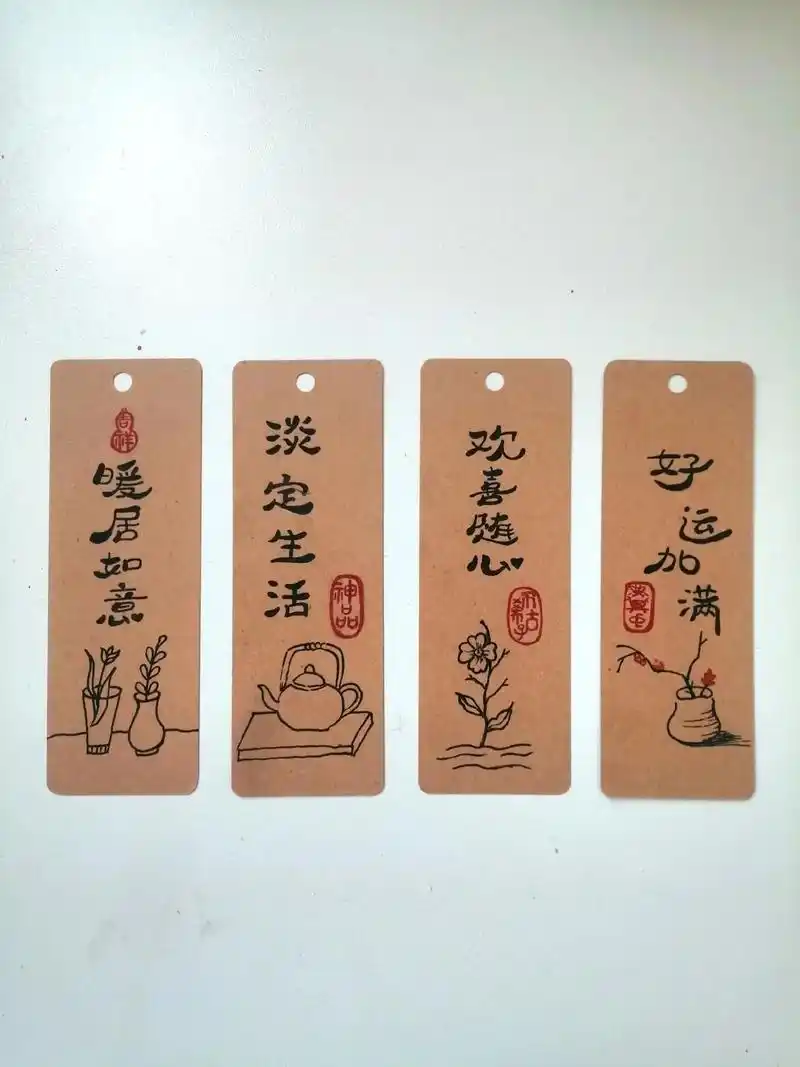 吉祥
暖居如意
淡定生活
神品
欢喜随心
好运加满